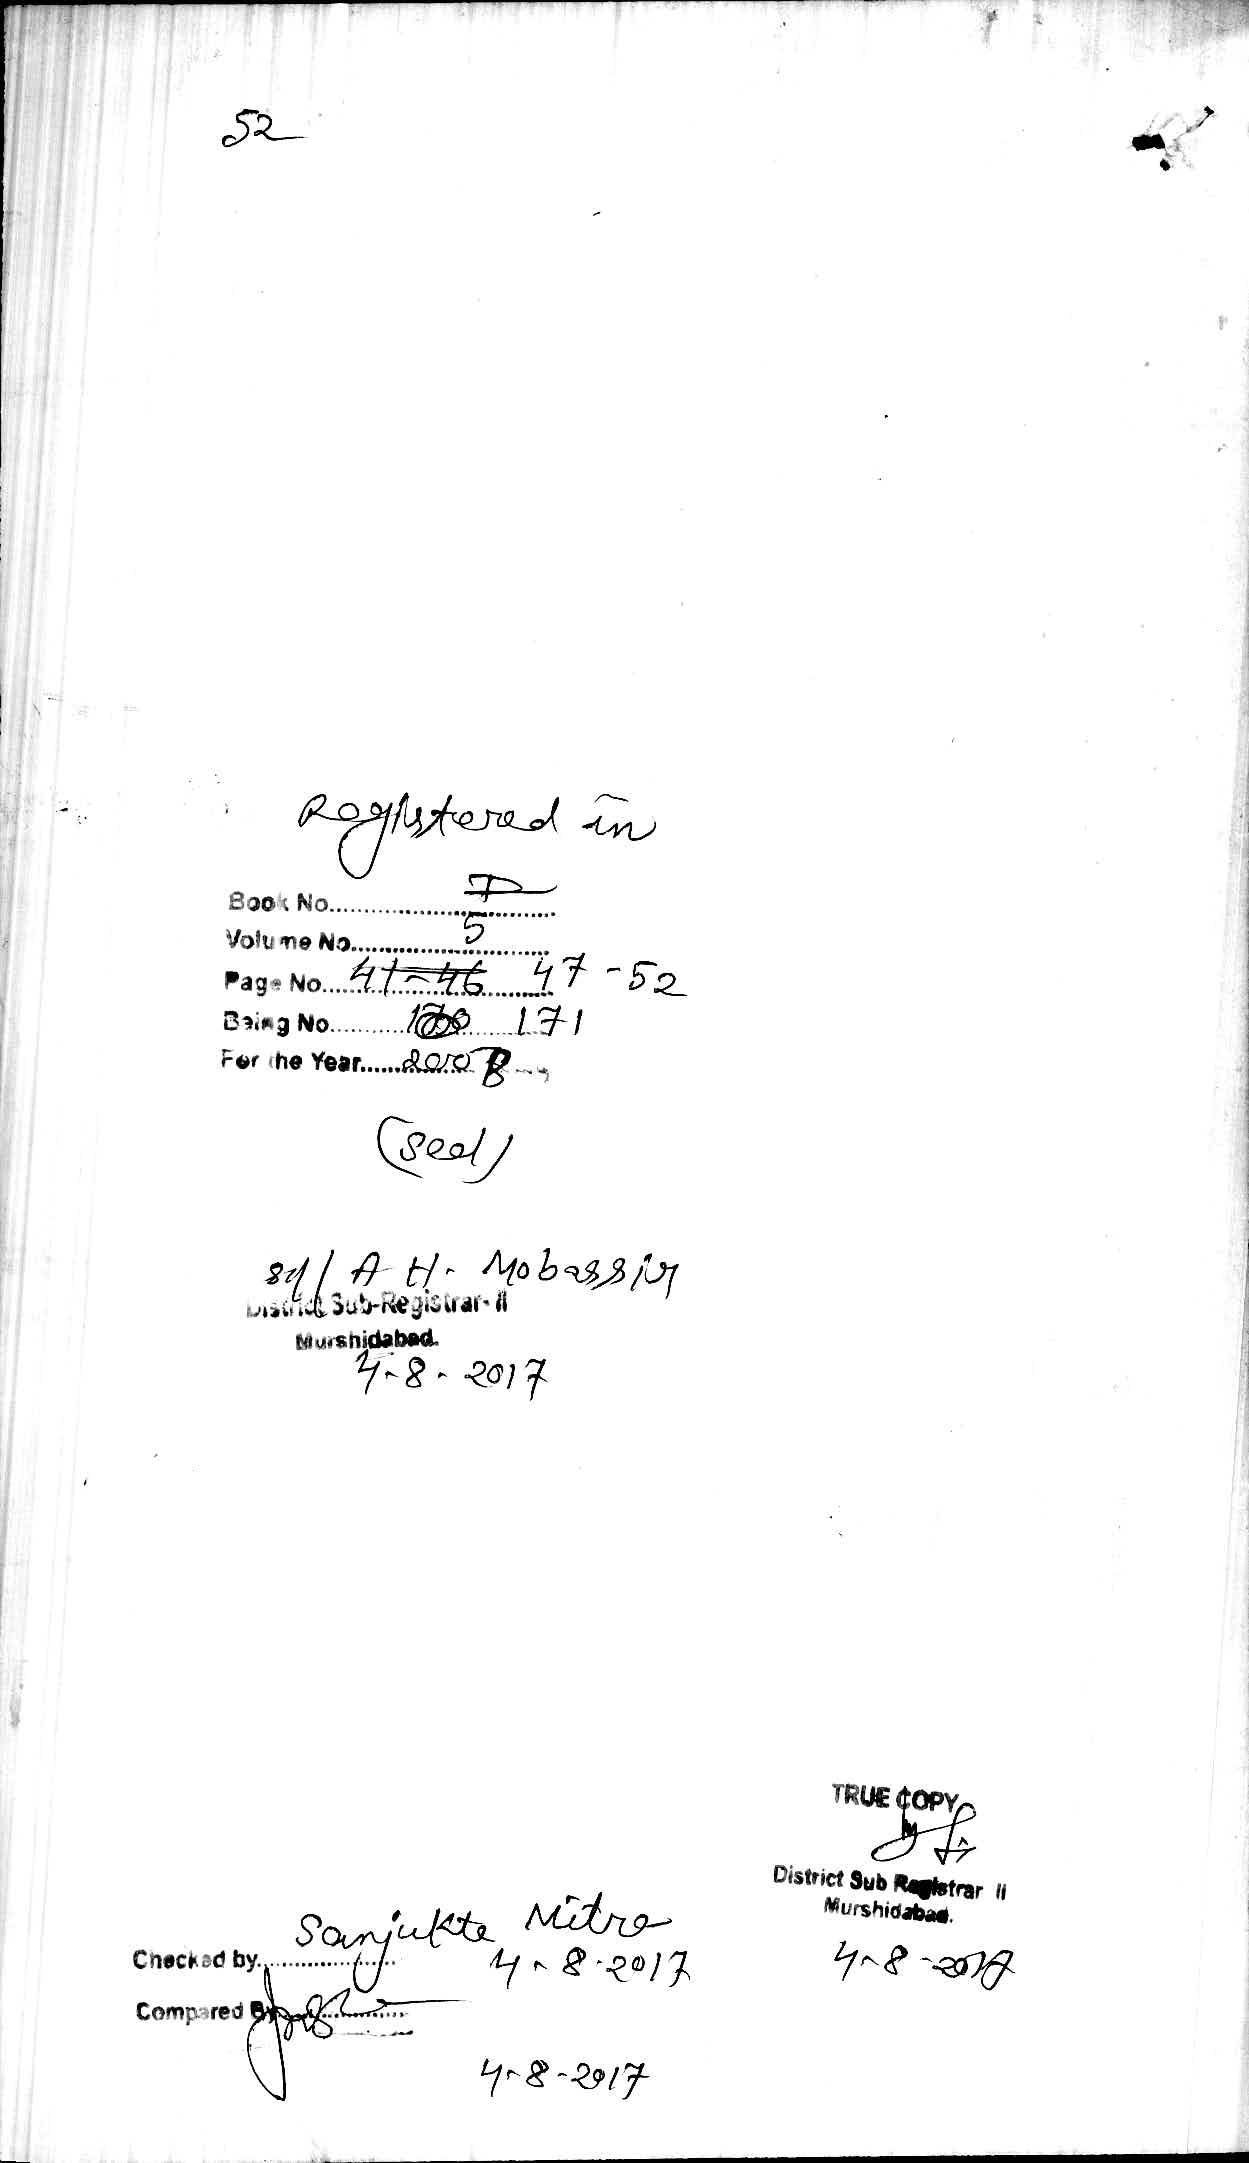 52
Registered in
Book No.......... I
Volume No.......... 5
Page No.......... 41-46 47-52
Being No.......... 171
For the Year.......
(Seal)
sd/ A H. Mobassir
District Sub-Registrar-II
Murshidabad.
4-8-2017
TRUE COPY
District Sub Registrar II
Murshidabad.
4-8-2017
Checked by.......... Sanjukta Mitra
4-8-2017
Compared By..........
4-8-2017